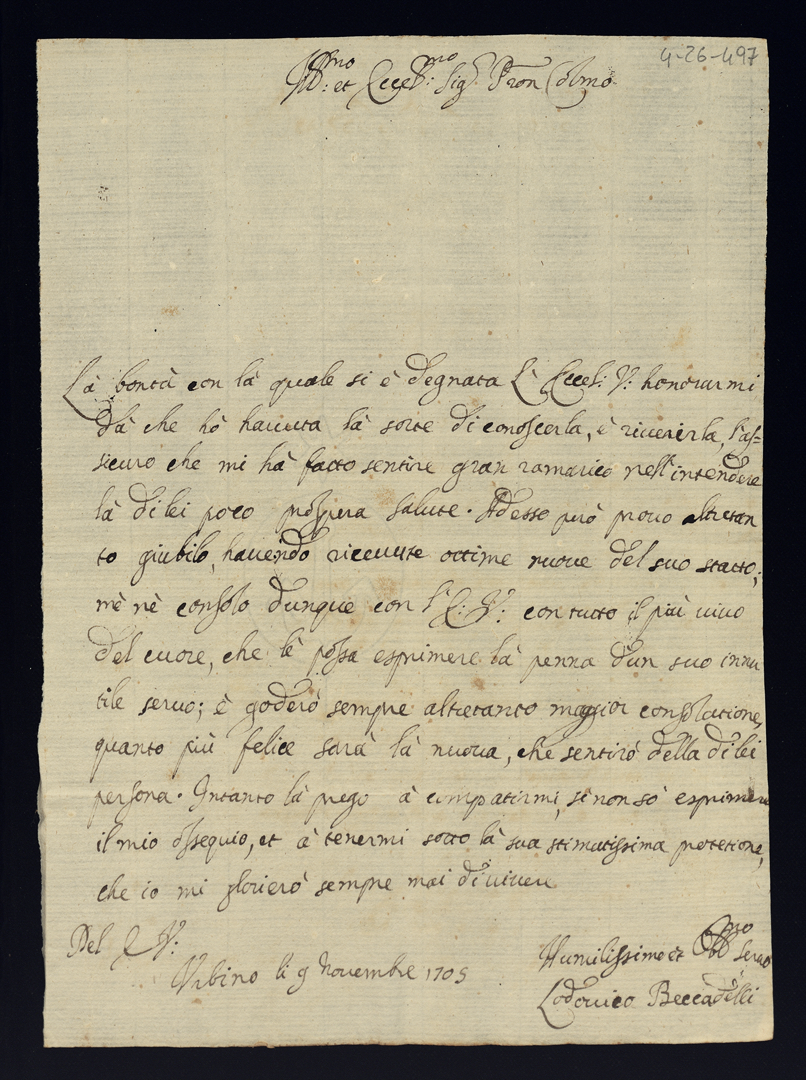 4-26-497
Ill:mo et Ecce:mo Sig:r Pron Colmo
Là bontà con là quale si è degnata L' Eccel: V: honorarmi
dà che hò hauuta là sorte di conoscerla, è riuerirla, l'as=
sicuro che mi hà fatto sentire gran ramarico nell'intendere
là di lei poco prospera salute. Adesso però prouo altretan
to giubilo, hauendo riceuute ottime nuoue del suo statto;
mè nè consolo dunque con l' E: V: con tutto il più uiuo
del cuore, che le possa esprimere là penna d'un suo innu
tile seruo; è goderò sempre altretanto maggior consolatione,
quanto più felice sarà là nuoua, che sentirò della di lei
persona. Intanto là prego à compatirmi, se non sò esprimere
il mio ossequio, et à tenermi sotto là sua stimatissima protetione,
che io mi glorierò sempre mai di uiuere
Del E V:
Vrbino li 9 Nouembre 1705
Humilissimo et Obb:mo Seruo
Lodouico Beccadelli